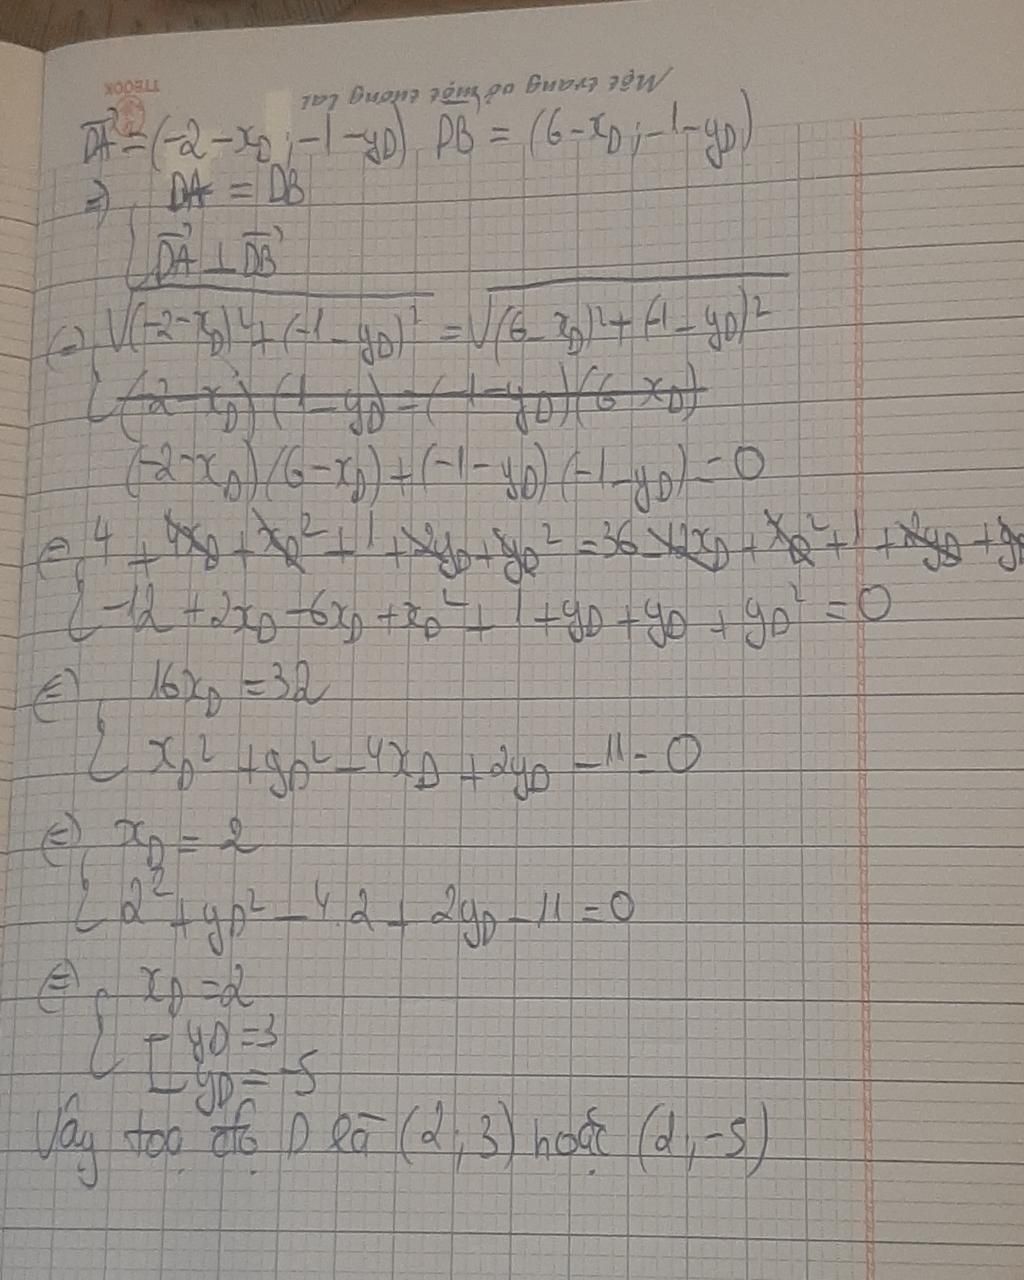 TTEBOOK
Một trang vở một tương lai
DA⃗ = (-2 - x_D ; -1 - y_D) DB = (6 - x_D ; -1 - y_D)
⇒ { DA = DB
DA⃗ ⊥ DB⃗
⇔ { √((-2 - x_D)² + (-1 - y_D)²) = √((6 - x_D)² + (-1 - y_D)²)
(-2 - x_D) (6 - x_D) + (-1 - y_D) (-1 - y_D) = 0
⇔ { 4 + 4x_D + x_D² + 1 + 2y_D + y_D² = 36 - 12x_D + x_D² + 1 + 2y_D + y_D
-12 + 2x_D - 6x_D + x_D² + 1 + y_D + y_D + y_D² = 0
⇔ { 16x_D = 32
x_D² + y_D² - 4x_D + 2y_D - 11 = 0
⇔ { x_D = 2
2² + y_D² - 4.2 + 2y_D - 11 = 0
⇔ { x_D = 2
[ y_D = 3
y_D = -5
Vậy toạ độ D là (2 ; 3) hoặc (2 ; -5)